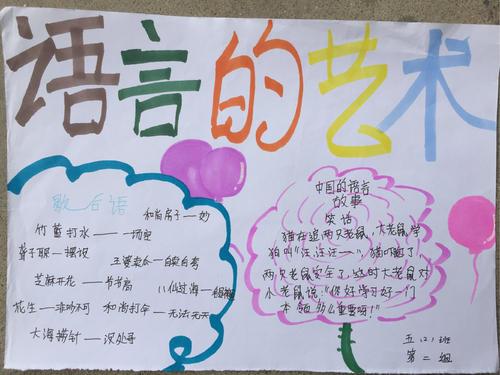 语言的艺术
歇后语
和尚房子——妙
竹篮打水——一场空
聋子耳——摆设
王婆卖瓜——自卖自夸
芝麻开花——节节高
八仙过海——
花生——非吵不可
和尚打伞——无法无天
大海捞针——深处寻
中国的语言
故事
笑话
猫在追两只老鼠,大老鼠学
狗叫“汪汪汪——”,猫吓跑了,
两只老鼠安全了,这时大老鼠对
小老鼠说:“你好学习好一门
本领多么重要呀!”
五(2)班
第二组